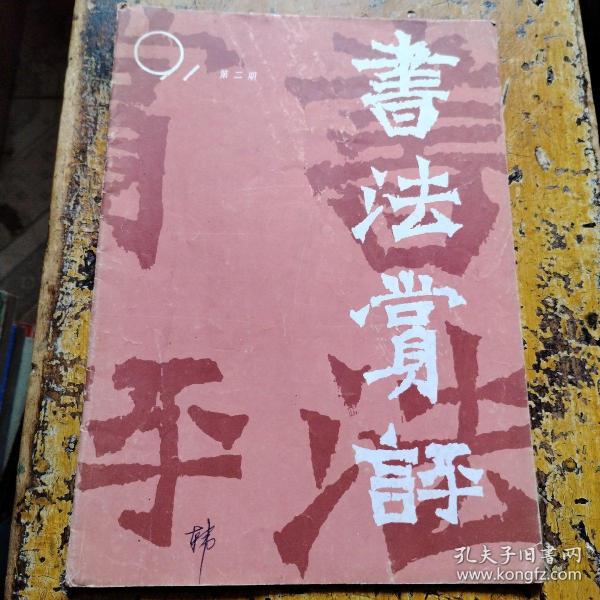 91 第二期
書法賞評
韩
孔夫子旧書网
www.kongfz.com